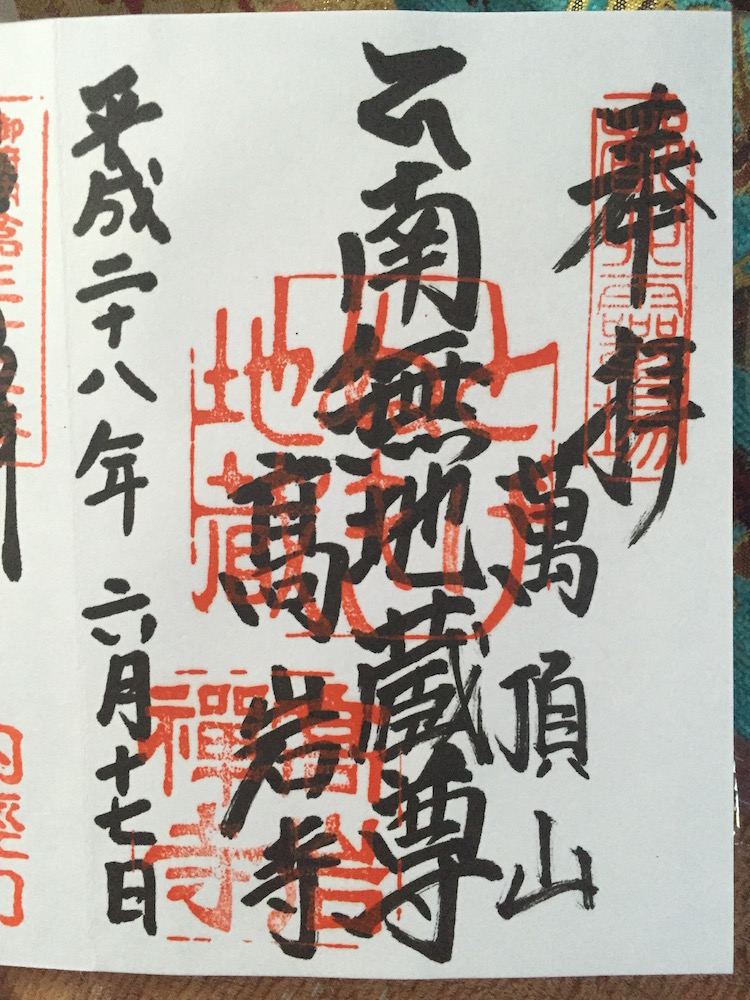 奉拝
萬頂山
南無地蔵尊
髙岩寺
平成二十八年六月十七日
地蔵
高岩
禪寺